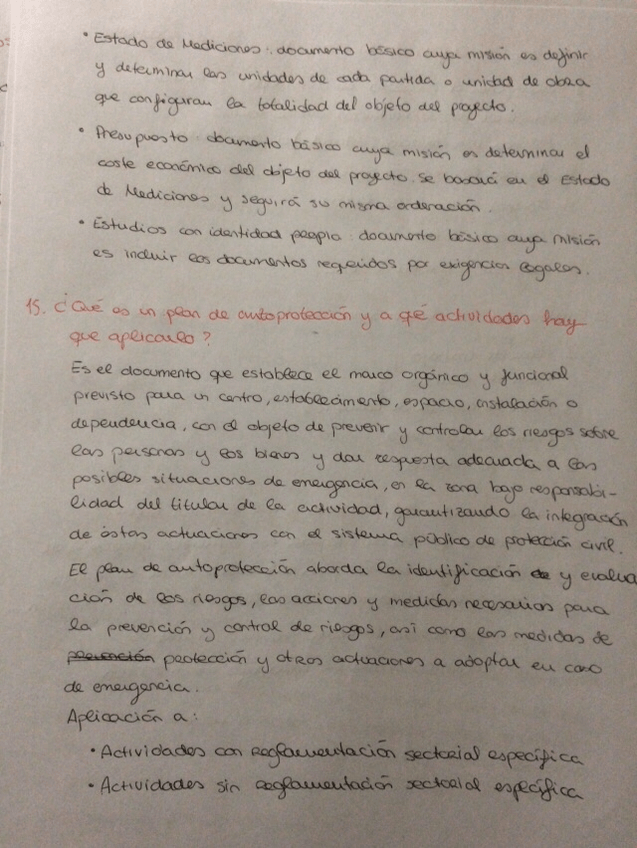 • Estado de Mediciones: documento básico cuya misión es definir
y determinar las unidades de cada partida o unidad de obra
que configuran la totalidad del objeto del proyecto.
• Presupuesto: documento básico cuya misión es determinar el
coste económico del objeto del proyecto. Se basará en el Estado
de Mediciones y seguirá su misma ordenación.
• Estudios con identidad propia: documento básico cuya misión
es incluir los documentos requeridos por exigencias legales.
15. ¿Qué es un plan de autoprotección y a qé actividades hay
que aplicarlo?
Es el documento que establece el marco orgánico y funcional
previsto para un centro, establecimiento, espacio, instalación o
dependencia, con el objeto de prevenir y controlar los riesgos sobre
las personas y los bienes y dar respuesta adecuada a las
posibles situaciones de emergencia, en la zona bajo responsabi-
lidad del titular de la actividad, garantizando la integración
de éstas actuaciones con el sistema público de protección civil.
El plan de autoprotección aborda la identificación de y evalua
ción de los riesgos, las acciones y medidas necesarias para
la prevención y control de riesgos, así como las medidas de
prevención protección y otras actuaciones a adoptar en caso
de emergencia.
Aplicación a:
• Actividades con Reglamentación sectorial específica
• Actividades sin Reglamentación sectorial específica